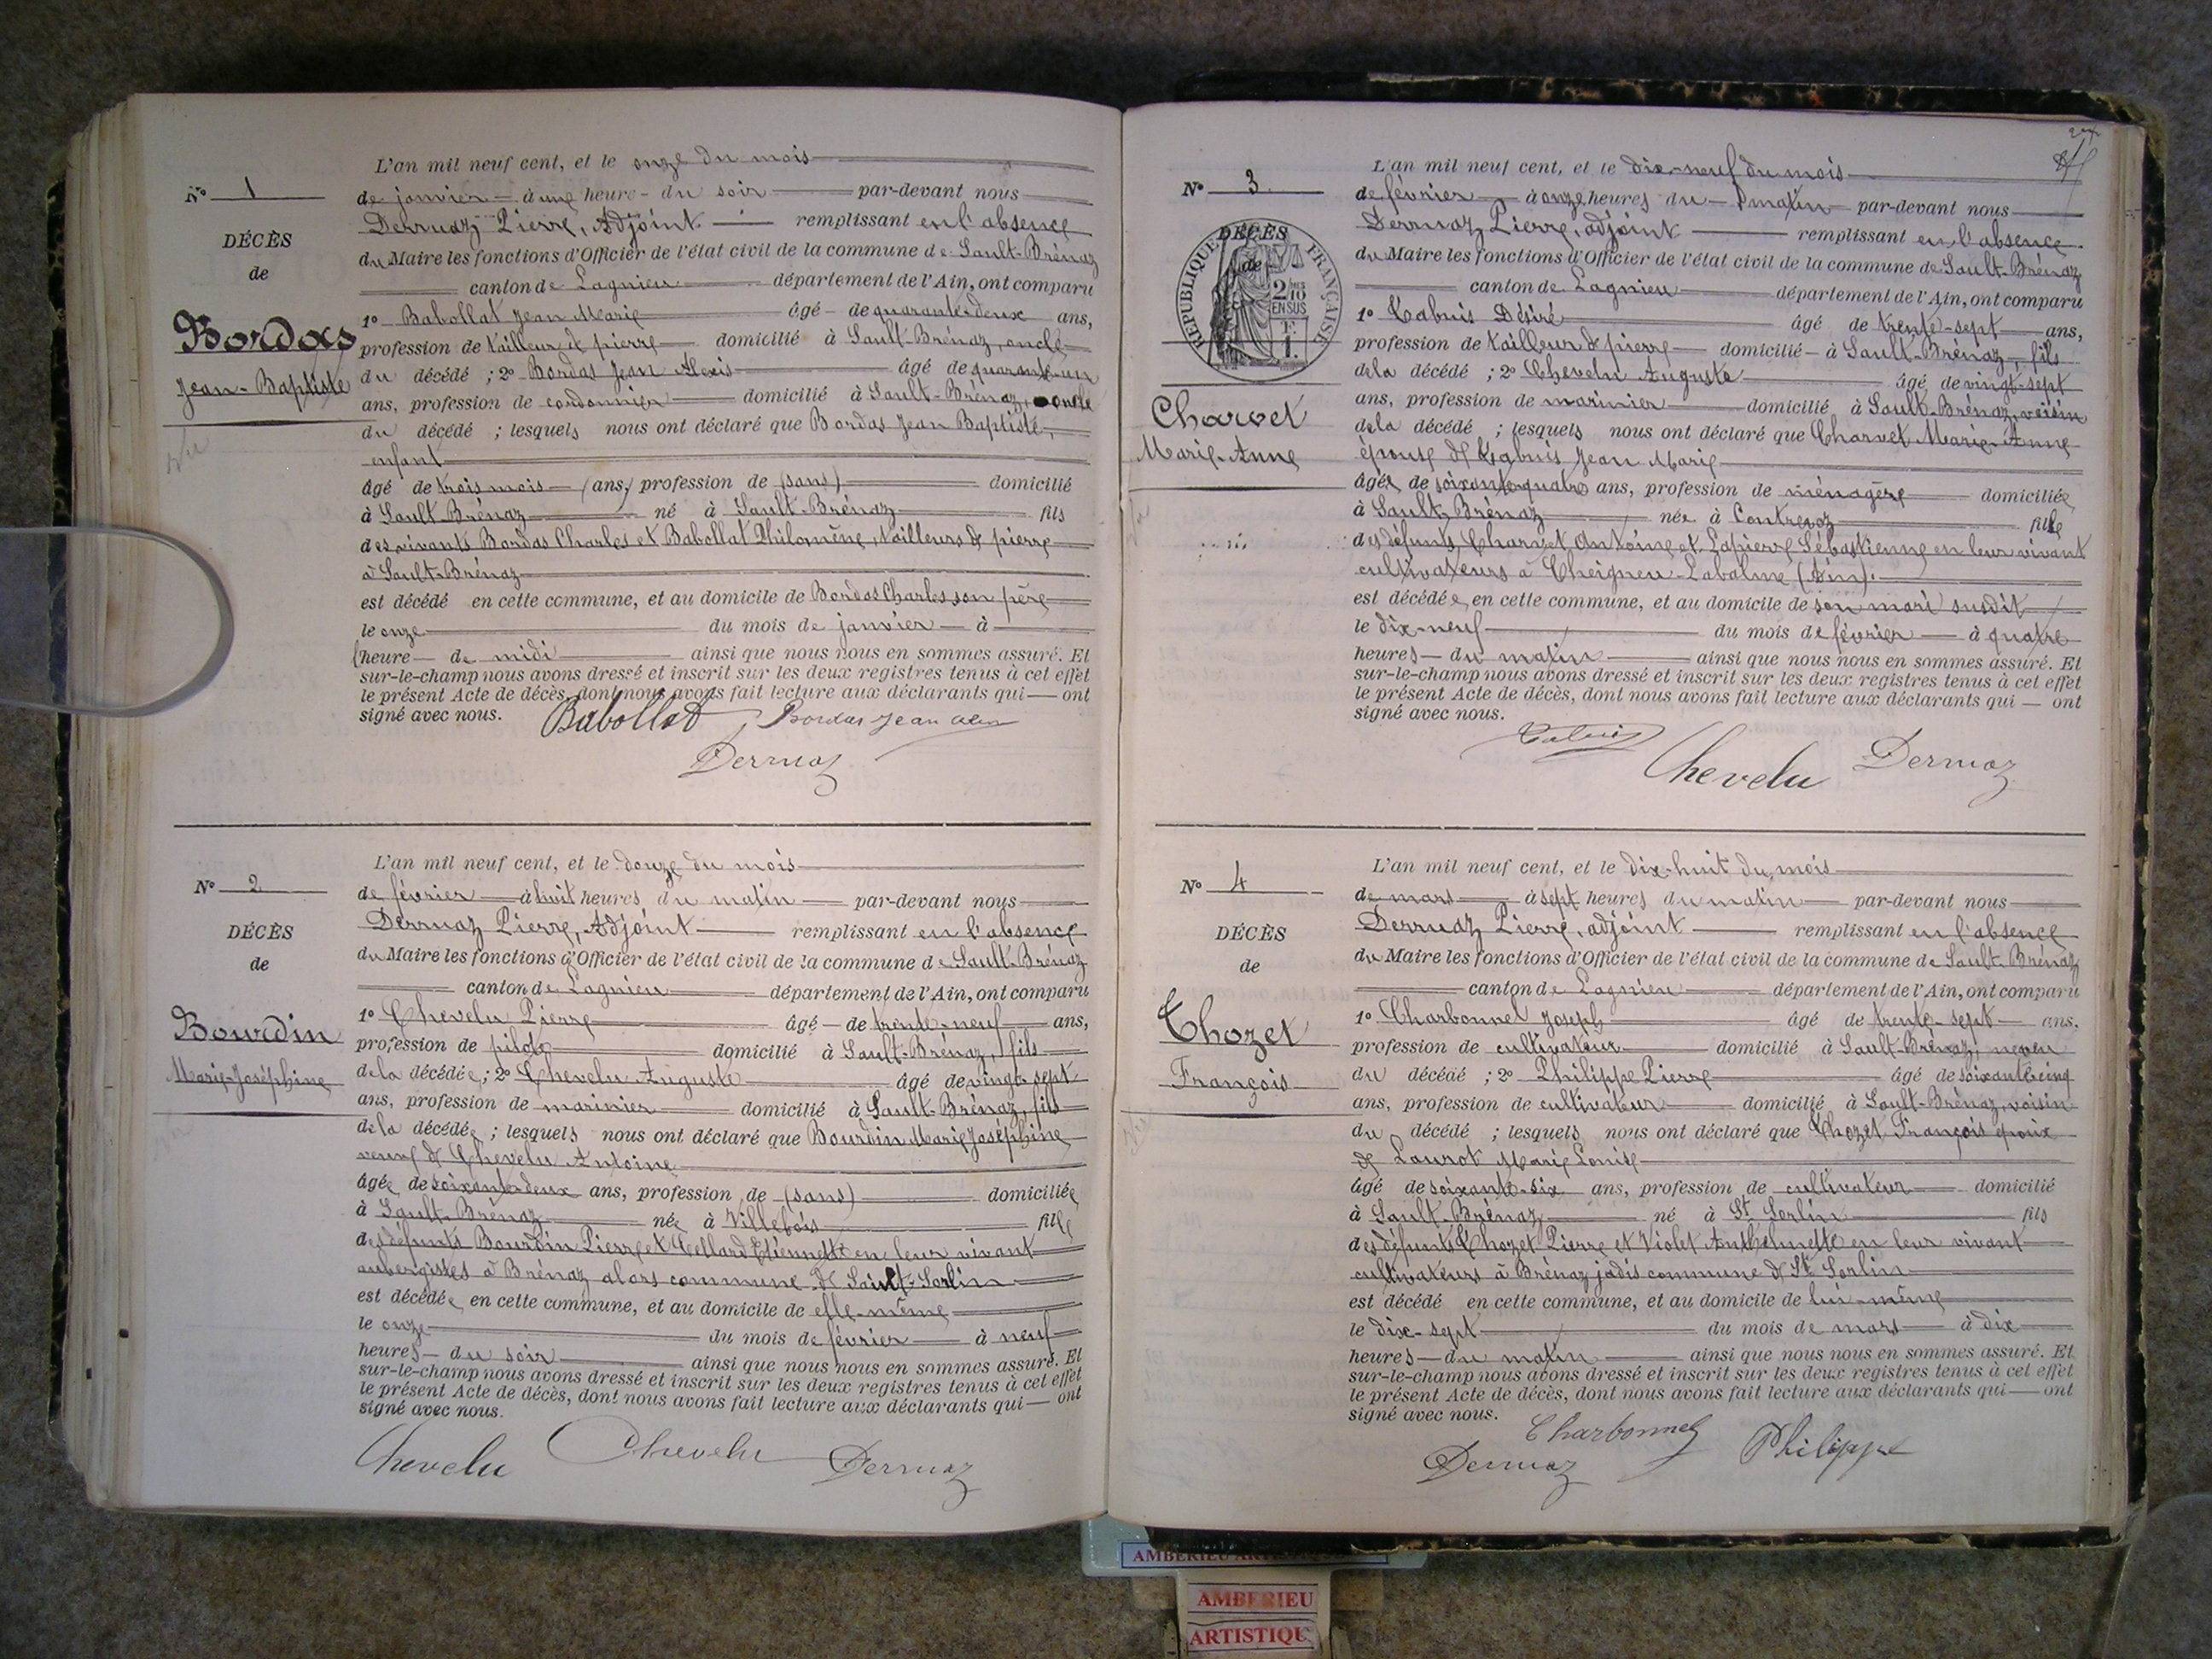 N° 1
DÉCÈS
de
Bordas
Jean-Baptiste
L'an mil neuf cent, et le onze du mois
de janvier à une heure du soir par-devant nous
Derruaz Pierre, Adjoint remplissant en l'absence
du Maire les fonctions d'Officier de l'état civil de la commune de Sault-Brénaz
canton de Lagnieu département de l'Ain, ont comparu
1° Babollat Jean Marie âgé de quarante-deux ans,
profession de tailleur de pierre domicilié à Sault-Brénaz, oncle
du décédé ; 2° Bordas Jean Alexis âgé de quarante-un
ans, profession de cordonnier domicilié à Sault-Brénaz, oncle
du décédé ; lesquels nous ont déclaré que Bordas Jean Baptiste,
enfant
âgé de trois mois (ans,) profession de (sans) domicilié
à Sault-Brénaz né à Sault-Brénaz fils
des vivants Bordas Charles et Babollat Philomène, tailleurs de pierre
à Sault-Brénaz
est décédé en cette commune, et au domicile de Bordas Charles son père
le onze du mois de janvier à
heure de midi ainsi que nous nous en sommes assuré. Et
sur-le-champ nous avons dressé et inscrit sur les deux registres tenus à cet effet
le présent Acte de décès, dont nous avons fait lecture aux déclarants qui ont
signé avec nous.
Babollat Bordas Jean
Derruaz
N° 2
DÉCÈS
de
Bourdin
Marie-Joséphine
L'an mil neuf cent, et le douze du mois
de février à huit heures du matin par-devant nous
Derruaz Pierre, Adjoint remplissant en l'absence
du Maire les fonctions d'Officier de l'état civil de la commune de Sault-Brénaz
canton de Lagnieu département de l'Ain, ont comparu
1° Chevelu Pierre âgé de trente-neuf ans,
profession de pilote domicilié à Sault-Brénaz, fils
de la décédée ; 2° Chevelu Auguste âgé de vingt-sept
ans, profession de marinier domicilié à Sault-Brénaz, fils
de la décédée ; lesquels nous ont déclaré que Bourdin Marie Joséphine
veuve de Chevelu Antoine
âgée de soixante-deux ans, profession de (sans) domiciliée
à Sault-Brénaz née à Villebois fille
des défunts Bourdin Pierre et Cellard Etiennette en leur vivant
aubergistes à Brénaz alors commune de Saint-Sorlin
est décédée en cette commune, et au domicile de elle-même
le onze du mois de février à neuf
heures du soir ainsi que nous nous en sommes assuré. Et
sur-le-champ nous avons dressé et inscrit sur les deux registres tenus à cet effet
le présent Acte de décès, dont nous avons fait lecture aux déclarants qui ont
signé avec nous.
Chevelu Chevelu Derruaz
N° 3
DÉCÈS
de
RÉPUBLIQUE FRANÇAISE
2/10
EN SUS
Charvet
Marie-Anne
L'an mil neuf cent, et le dix-neuf du mois
de février à onze heures du matin par-devant nous
Derruaz Pierre, adjoint remplissant en l'absence
du Maire les fonctions d'Officier de l'état civil de la commune de Sault-Brénaz
canton de Lagnieu département de l'Ain, ont comparu
1° Cabuis Désiré âgé de trente-sept ans,
profession de tailleur de pierre domicilié à Sault-Brénaz, fils
de la décédé ; 2° Chevelu Auguste âgé de vingt-sept
ans, profession de marinier domicilié à Sault-Brénaz, voisin
de la décédé ; lesquels nous ont déclaré que Charvet Marie-Anne
épouse de Cabuis Jean Marie
âgée de soixante-quatre ans, profession de ménagère domiciliée
à Sault-Brénaz née à Contrevoz fille
des défunts Charvet Antoine et Lapierre Sébastienne en leur vivant
cultivateurs à Cheigneu-Labalme (Ain).
est décédée en cette commune, et au domicile de son mari susdit
le dix-neuf du mois de février à quatre
heures du matin ainsi que nous nous en sommes assuré. Et
sur-le-champ nous avons dressé et inscrit sur les deux registres tenus à cet effet
le présent Acte de décès, dont nous avons fait lecture aux déclarants qui ont
signé avec nous.
Cabuis Chevelu Derruaz
N° 4
DÉCÈS
de
Chozet
François
L'an mil neuf cent, et le dix-huit du mois
de mars à sept heures du matin par-devant nous
Derruaz Pierre, adjoint remplissant en l'absence
du Maire les fonctions d'Officier de l'état civil de la commune de Sault-Brénaz
canton de Lagnieu département de l'Ain, ont comparu
1° Charbonnel Joseph âgé de trente-sept ans,
profession de cultivateur domicilié à Sault-Brénaz, neveu
du décédé ; 2° Philippe Pierre âgé de soixante cinq
ans, profession de cultivateur domicilié à Sault-Brénaz, voisin
du décédé ; lesquels nous ont déclaré que Chozet François époux
de Laurot Marie Louise
âgé de soixante-six ans, profession de cultivateur domicilié
à Sault-Brénaz né à St Sorlin fils
des défunts Chozet Pierre et Violet Anthelmette en leur vivant
cultivateurs à Brénaz jadis commune de St Sorlin
est décédé en cette commune, et au domicile de lui-même
le dix-sept du mois de mars à dix
heures du matin ainsi que nous nous en sommes assuré. Et
sur-le-champ nous avons dressé et inscrit sur les deux registres tenus à cet effet
le présent Acte de décès, dont nous avons fait lecture aux déclarants qui ont
signé avec nous.
Charbonnel Philippe
Derruaz
AMBERIEU
AMBERIEU
ARTISTIQU